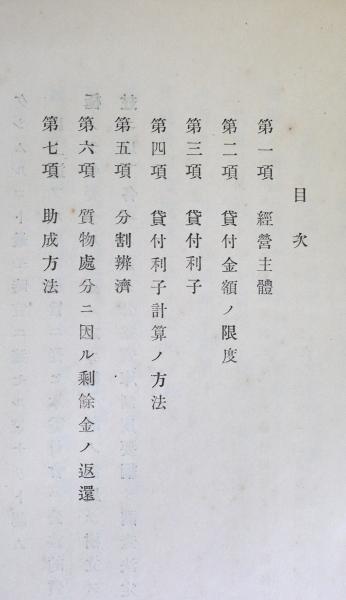 目次
第一項 經營主體
第二項 貸付金額ノ限度
第三項 貸付利子
第四項 貸付利子計算ノ方法
第五項 分割辨濟
第六項 質物處分ニ因ル剩餘金ノ返還
第七項 助成方法